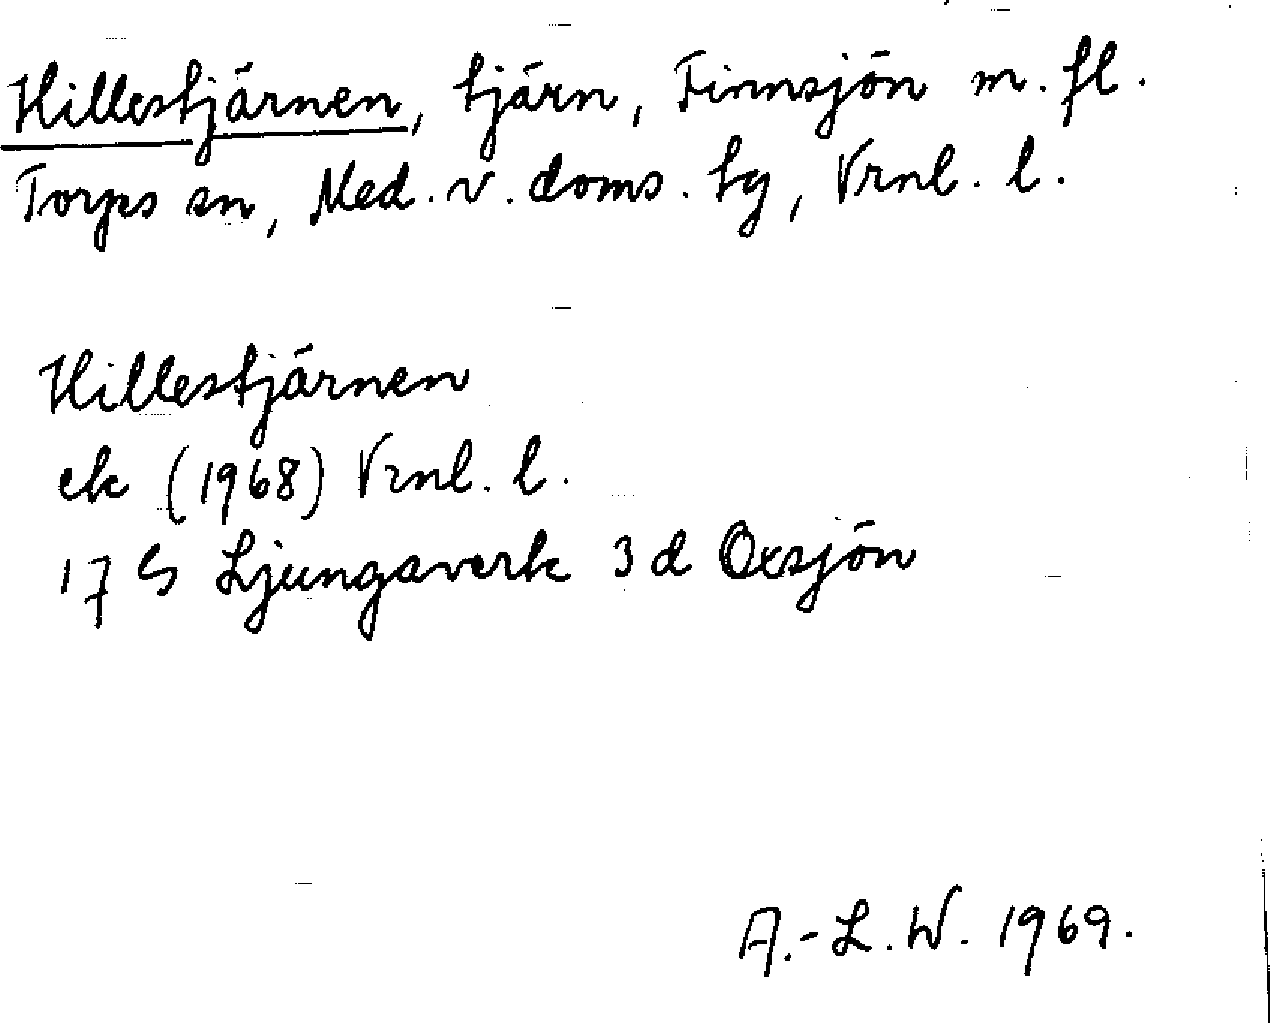 Hillestjärnen, tjärn, Finnsjön m. fl.
Torps sn, Med. v. doms. tg, Vrnl. l.
Hillestjärnen
ek (1968) Vrnl. l.
17 G Ljungaverk 3 d Oxsjön
A.-L. W. 1969.